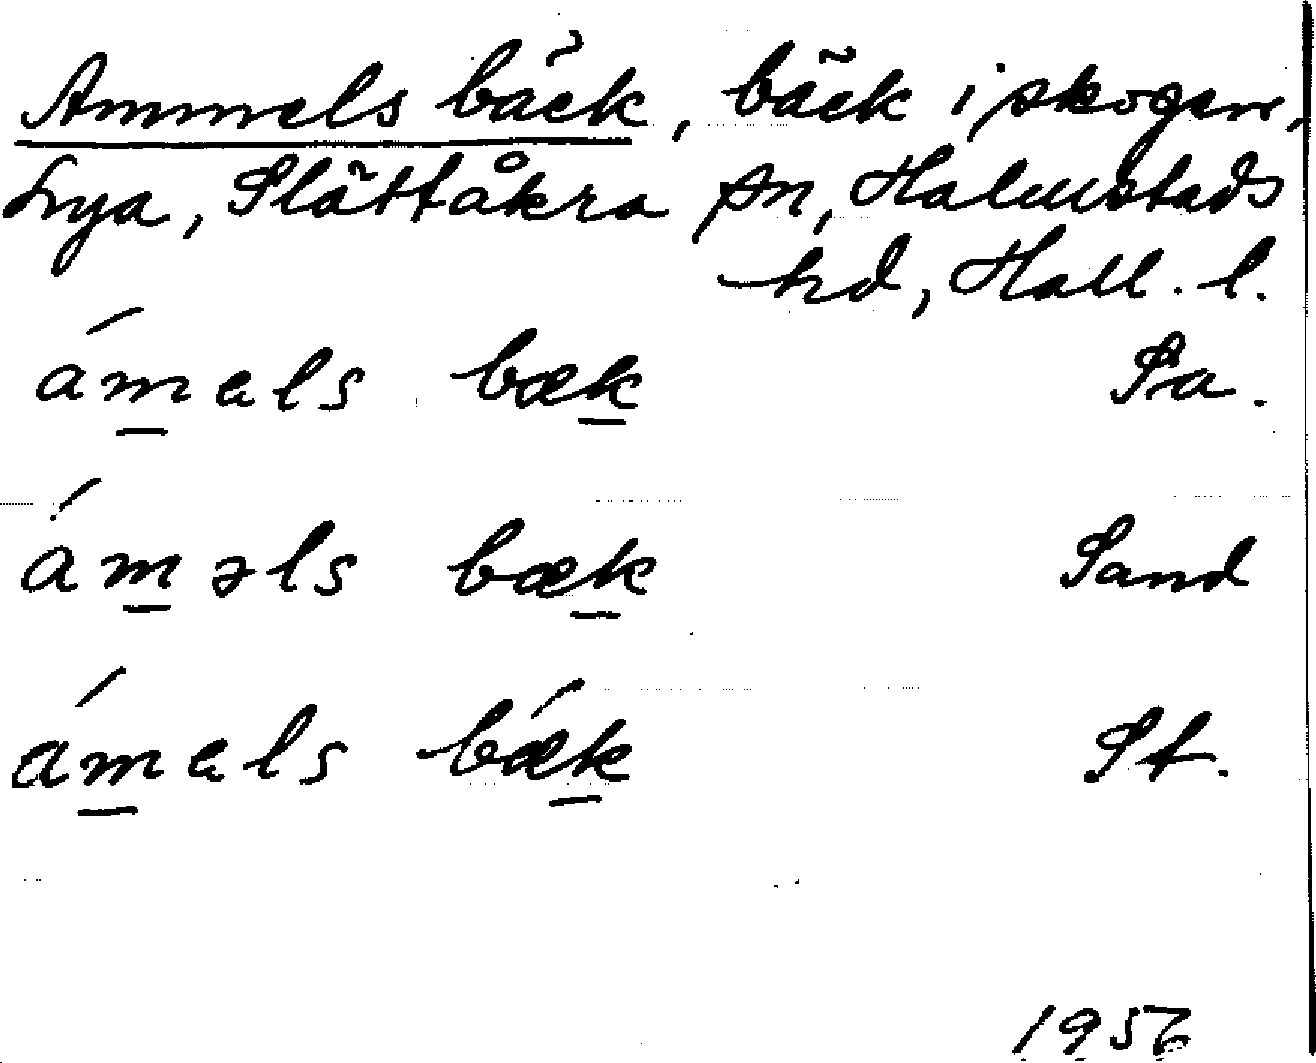 Ammels bäck, bäck i skogen,
Lya, Slättåkra sn, Halmstads
hd, Hall. l.
ámals bæk Sa.
áməls bæk Sand
ámals bǽk St.
1956